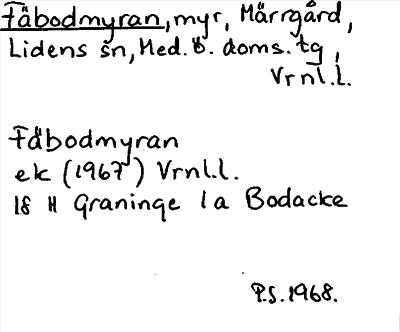 Fäbodmyran, myr, Märrgård,
Lidens sn, Med. ö. doms. tg,
Vrnl.l.
Fäbodmyran
ek (1967) Vrnl.l.
18 H Graninge 1a Bodacke
P.S. 1968.